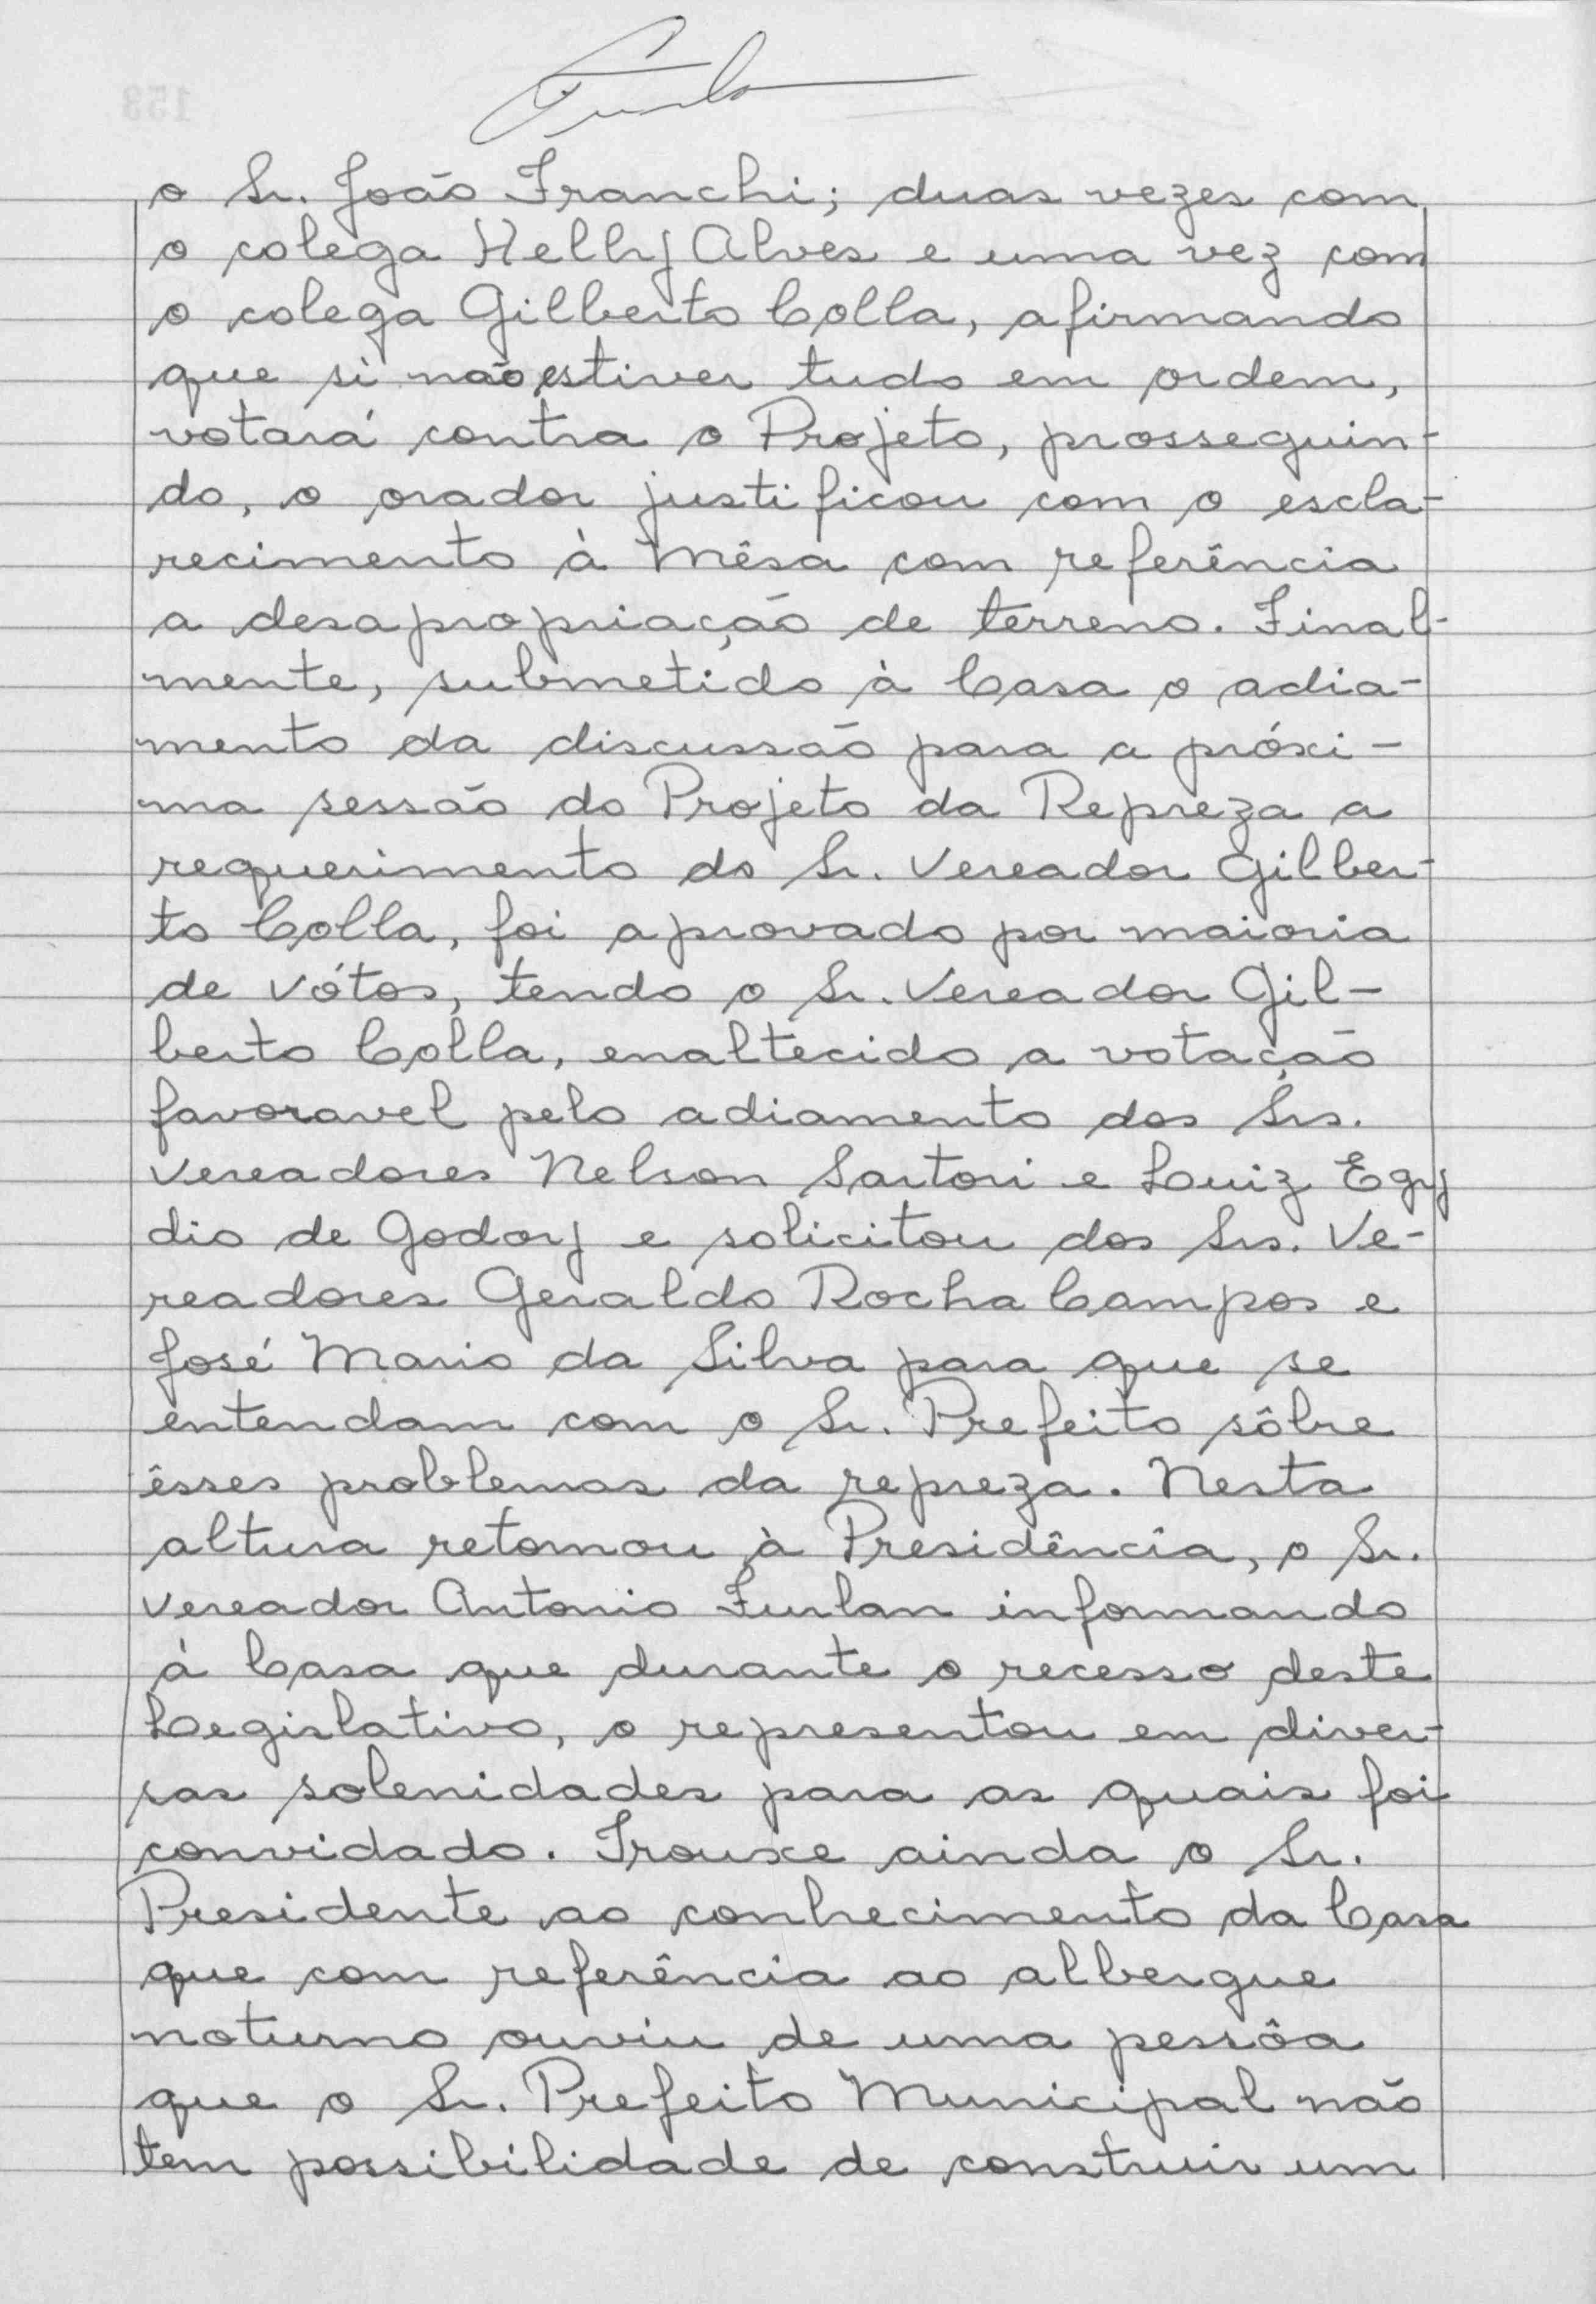 Furlan
o Sr. João Franchi; duas vezes com
o colega Helly Alves e uma vez com
o colega Gilberto Colla, afirmando
que si não estiver tudo em ordem,
votará contra o Projeto, prosseguin-
do, o orador justificou com o escla-
recimento à Mêsa com referência
a desapropriação de terreno. Final-
mente, submetido à Casa o adia-
mento da discussão para a próxi-
ma sessão do Projeto da Repreza a
requerimento do Sr. Vereador Gilber-
to Colla, foi aprovado por maioria
de vótos, tendo o Sr. Vereador Gil-
berto Colla, enaltecido a votação
favoravel pelo adiamento dos Srs.
Vereadores Nelson Sartori e Luiz Egy
dio de Godoy e solicitou dos Srs. Ve-
readores Geraldo Rocha Campos e
José Mario da Silva para que se
entendam com o Sr. Prefeito sôbre
êsses problemas da repreza. Nesta
altura retornou à Presidência, o Sr.
Vereador Antonio Furlan informando
à Casa que durante o recesso deste
Legislativo, o representou em diver-
sas solenidades para as quais foi
convidado. Trouxe ainda o Sr.
Presidente ao conhecimento da Casa
que com referência ao albergue
noturno ouviu de uma pessôa
que o Sr. Prefeito Municipal não
tem possibilidade de construir um